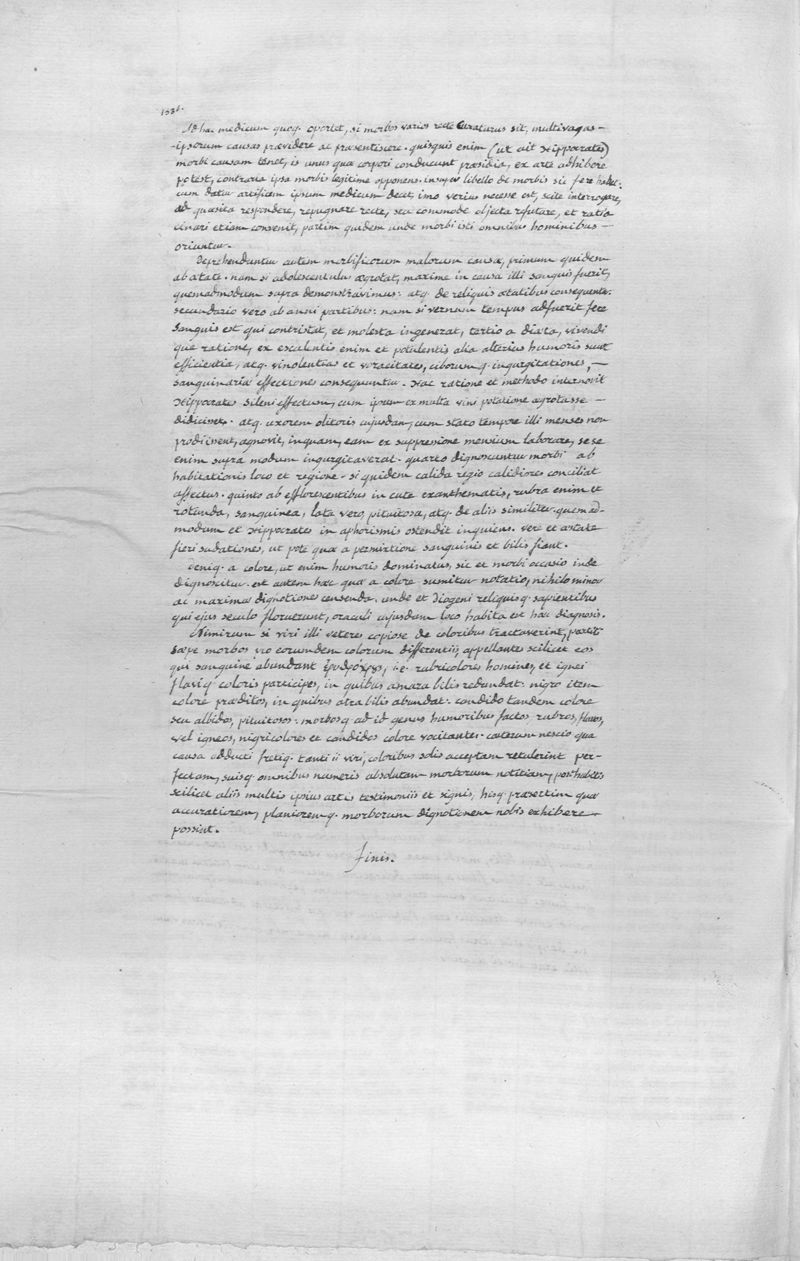 1536.
Ad hac medicum quoq. oportet, si morbos varios recte Curaturus sit, multivagas -
- ipsorum causas prævidere ac præsentiscere. quisquis enim (ut ait Hippocrates)
morbi causam tenet, is unus qua corpori conducunt præsidia, ex arte adhibere
potest, contraria ipsa morbis legitime opponens. insuper libello de morbis sic fere habet.
cum datur artificem ipsum medicum decet, imo verius necesse est, scite interrogare,
ad quæsita respondere, repugnare recte, seu commode objecta refutare, et ratio
cinari etiam convenit, partim quidem unde morbi isti omnibus hominibus -
oriuntur.
Deprehenduntur autem morbificorum malorum causæ, primum quidem
ab ætate. nam si adolescentulus ægrotat, maxime in causa illi sanguis fuerit,
quemadmodum supra demonstravimus. atq. de reliquis ætatibus consequenter.
secundario vero ab anni partibus. nam si vernum tempus adfuerit fere
sanguis est qui contristat, et molesta ingenerat, tertio a diæta, vivendi
que ratione, ex esculentis enim et potulentis alia alterius humoris sunt
efficientia, atq. vinolentias et voracitates, ciborumq. ingurgitationes, -
sanguinariæ effectiones consequuntur. Hac ratione et methodo internovit
Hippocrates sileni effectum, cum ipsum ex multa vini potatione ægrotasse -
didicisset. atq. uxorem olitoris cujusdam, cum stato tempore illi menses non
prodiissent, agnovit, inquam, eam ex suppressione mensium laborare, sese
enim supra modum ingurgitaverat. quarto dignoscuntur morbi ab
habitationis loco et regione. si quidem calida regio calidiores conciliat
affectus. quinto ab efflorescentibus in cute exanthematis, rubra enim et
rotunda, sanguinea, lata vero, pituitosa, atq. de aliis similiter quemad-
modum et Hippocrates in aphorismis ostendit inquiens. vere et æstate
fieri sudationes, ut pote qua a permixtione sanguinis et bilis fiant.
Deniq. a colore, ut enim humoris dominatus, sic et morbi occasio inde
dignoscitur. est autem hæc qua a colore sumitur notatio, nihilo minor
ac maxima dignotione censenda. unde et Diogeni reliquisq. sapientibus
qui ejus seculo floruerunt, oraculi cujusdam loco habita est hæc diagnosis.
Nimirum si viri illi veteres copiose de coloribus tractaverint, partiti
sæpe morbos pro eorumdem colorum differentiis, appellantes scilicet eos
qui sanguine abundant ἐρυθρόχρους, i.e. rubricolores homines, et ignei
flaviq. coloris participes, in quibus amara bilis redundat. nigro item
colore præditos, in quibus atra bilis abundat. candido tandem colore
seu albidos, pituitosos. morbosq. ad id genus humoribus factos rubros, flavos,
vel igneos, nigricolores et candidos colore vocitanter. cæterum nescio qua
causa adducti fretiq. tanti ii viri, coloribus solis acceptam retulerint per-
fectam, suisq. omnibus numeris absolutam morborum notitiam, posthabitis
scilicet aliis multis ipsius artis testimoniis et signis, hisq. præsertim quæ
accuratiorem, planioremq. morborum dignotionem nobis exhibere
possint.
finis.